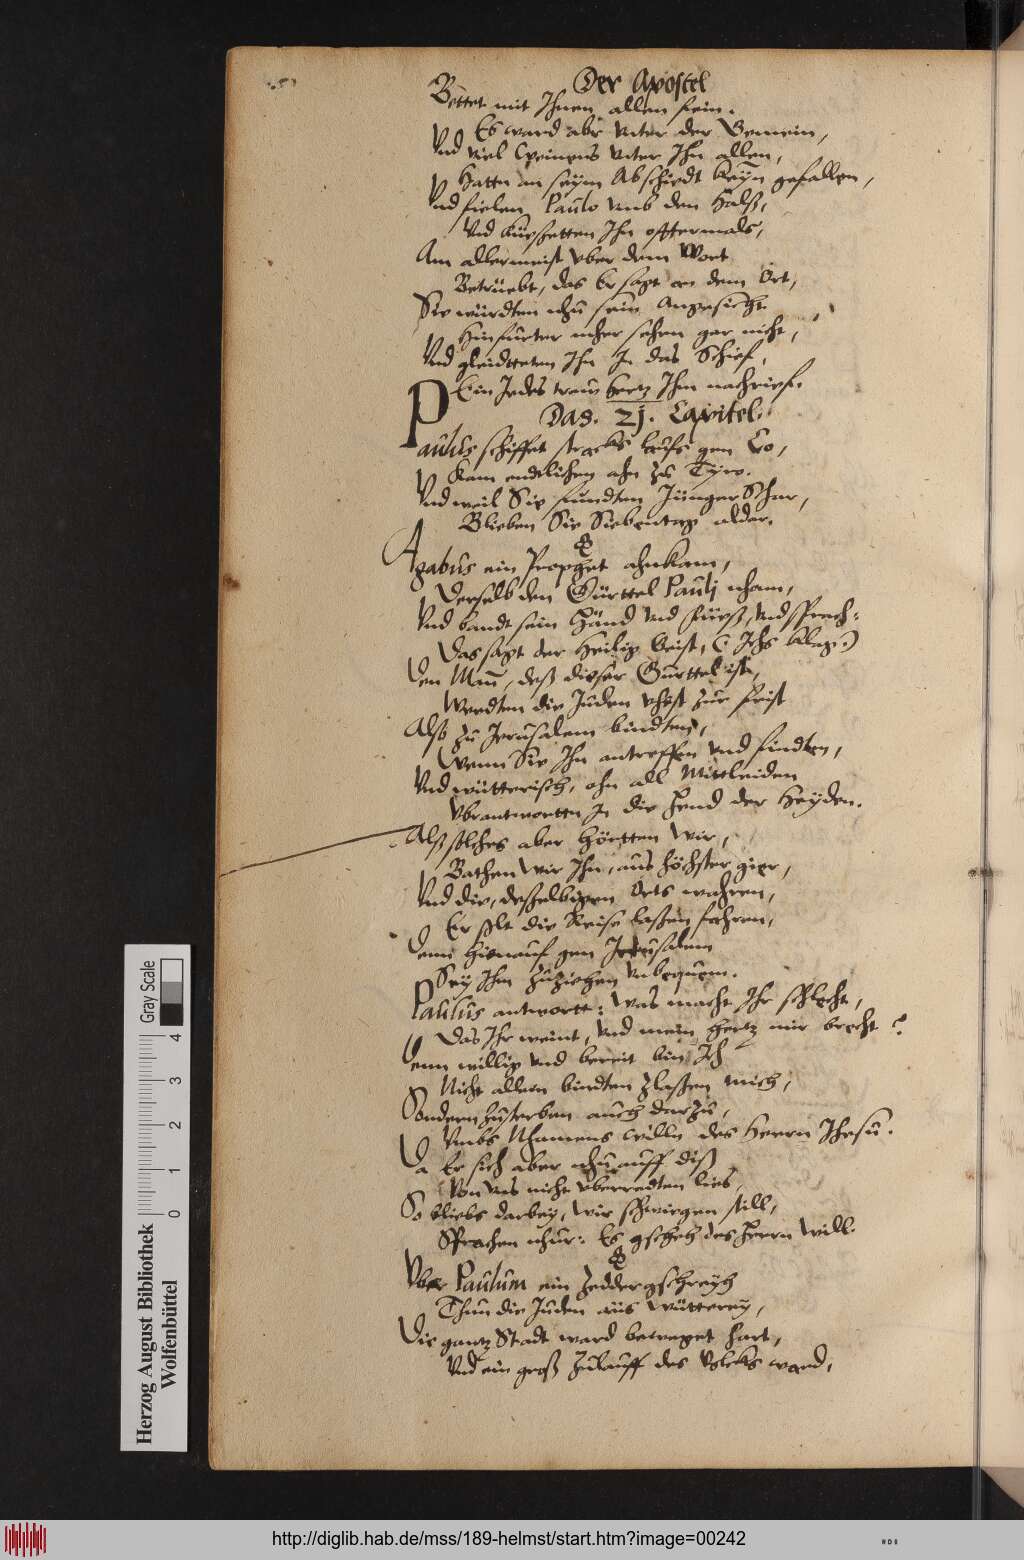 Der Apostel
Bettet mit Ihnen allen fein.
Es ward aber vnter der Gemein,
Vnd viel Weinens vnter Ihn allen,
Hattn an seym Abschiedt keyn gefallen,
Vnd fielen Paulo vmb den Halß,
Vnd küsßetten Ihn offtermals,
Am allermeist vber dem Wort
Betrüebt, das Er sagt an dem Ort,
Sie würdten nhu sein Angesicht
Hinfurter mher sehen gar nicht,
Vnd gleidtteten Ihn In das Schief,
Ein Jedes traw hertz Ihm nachrief.
Das. 21. Capitel.
Paulus schiffet stracks laufs gen Co,
Kam endtlichen ahn zu Tyro.
Vnd weil Sie fundten Jünger Schar,
Blieben Sie Siebentag aldar.
Agabus ein Prophet ahnkam,
Derselb den Gürttel Paulj nham,
Vnd bandt sein Händ vnd füeß, vnd sprach:
Das sagt der Heilig Geist, (Ichs klag:)
Den Man, deß dieser Gürttel ist,
Werdten die Juden zur frist
Also zu Jerusalem bindten,
Wenn Sie Ihn antreffen vnd findten,
Vnd wütterisch, ohn all Mittleiden
Vbrantwortten In die Hend der Heyden.
Alß solches aber hörtten Wir,
Bathen Wir Ihn, aus höchster gier,
Vnd die, desselbigen Orts wahren,
Er solt die Reise laßen fahren,
Denn hienauf gen Jerusalem
Sey Ihm zuziehen vnbequem.
Paulus antwortt: Was macht Ihr schlecht,
Das Ihr weint, vnd mein hertz mir brecht?
Denn willig vnd bereit bin Ich
Nicht allein bindten zlaßen mich,
Sondern zusterben auch darzu,
Vmbs Nhamens willn des Herrn Jhesu.
Da Er sich aber nhu auff diß
Von vns nicht vberredten lies,
So bliebs darbey, wir schwiegen still,
Sprachen nhur: Es gscheh des Herrn Will.
Vber Paulum ein Zeddergschreyh
Thun die Juden aus Wütterey,
Die gantz Stadt ward beweget hart,
Vnd ein groß Zulauff des Volcks ward,
Herzog August Bibliothek
Wolfenbüttel
0 1 2 3 4
Gray Scale
http://diglib.hab.de/mss/189-helmst/start.htm?image=00242